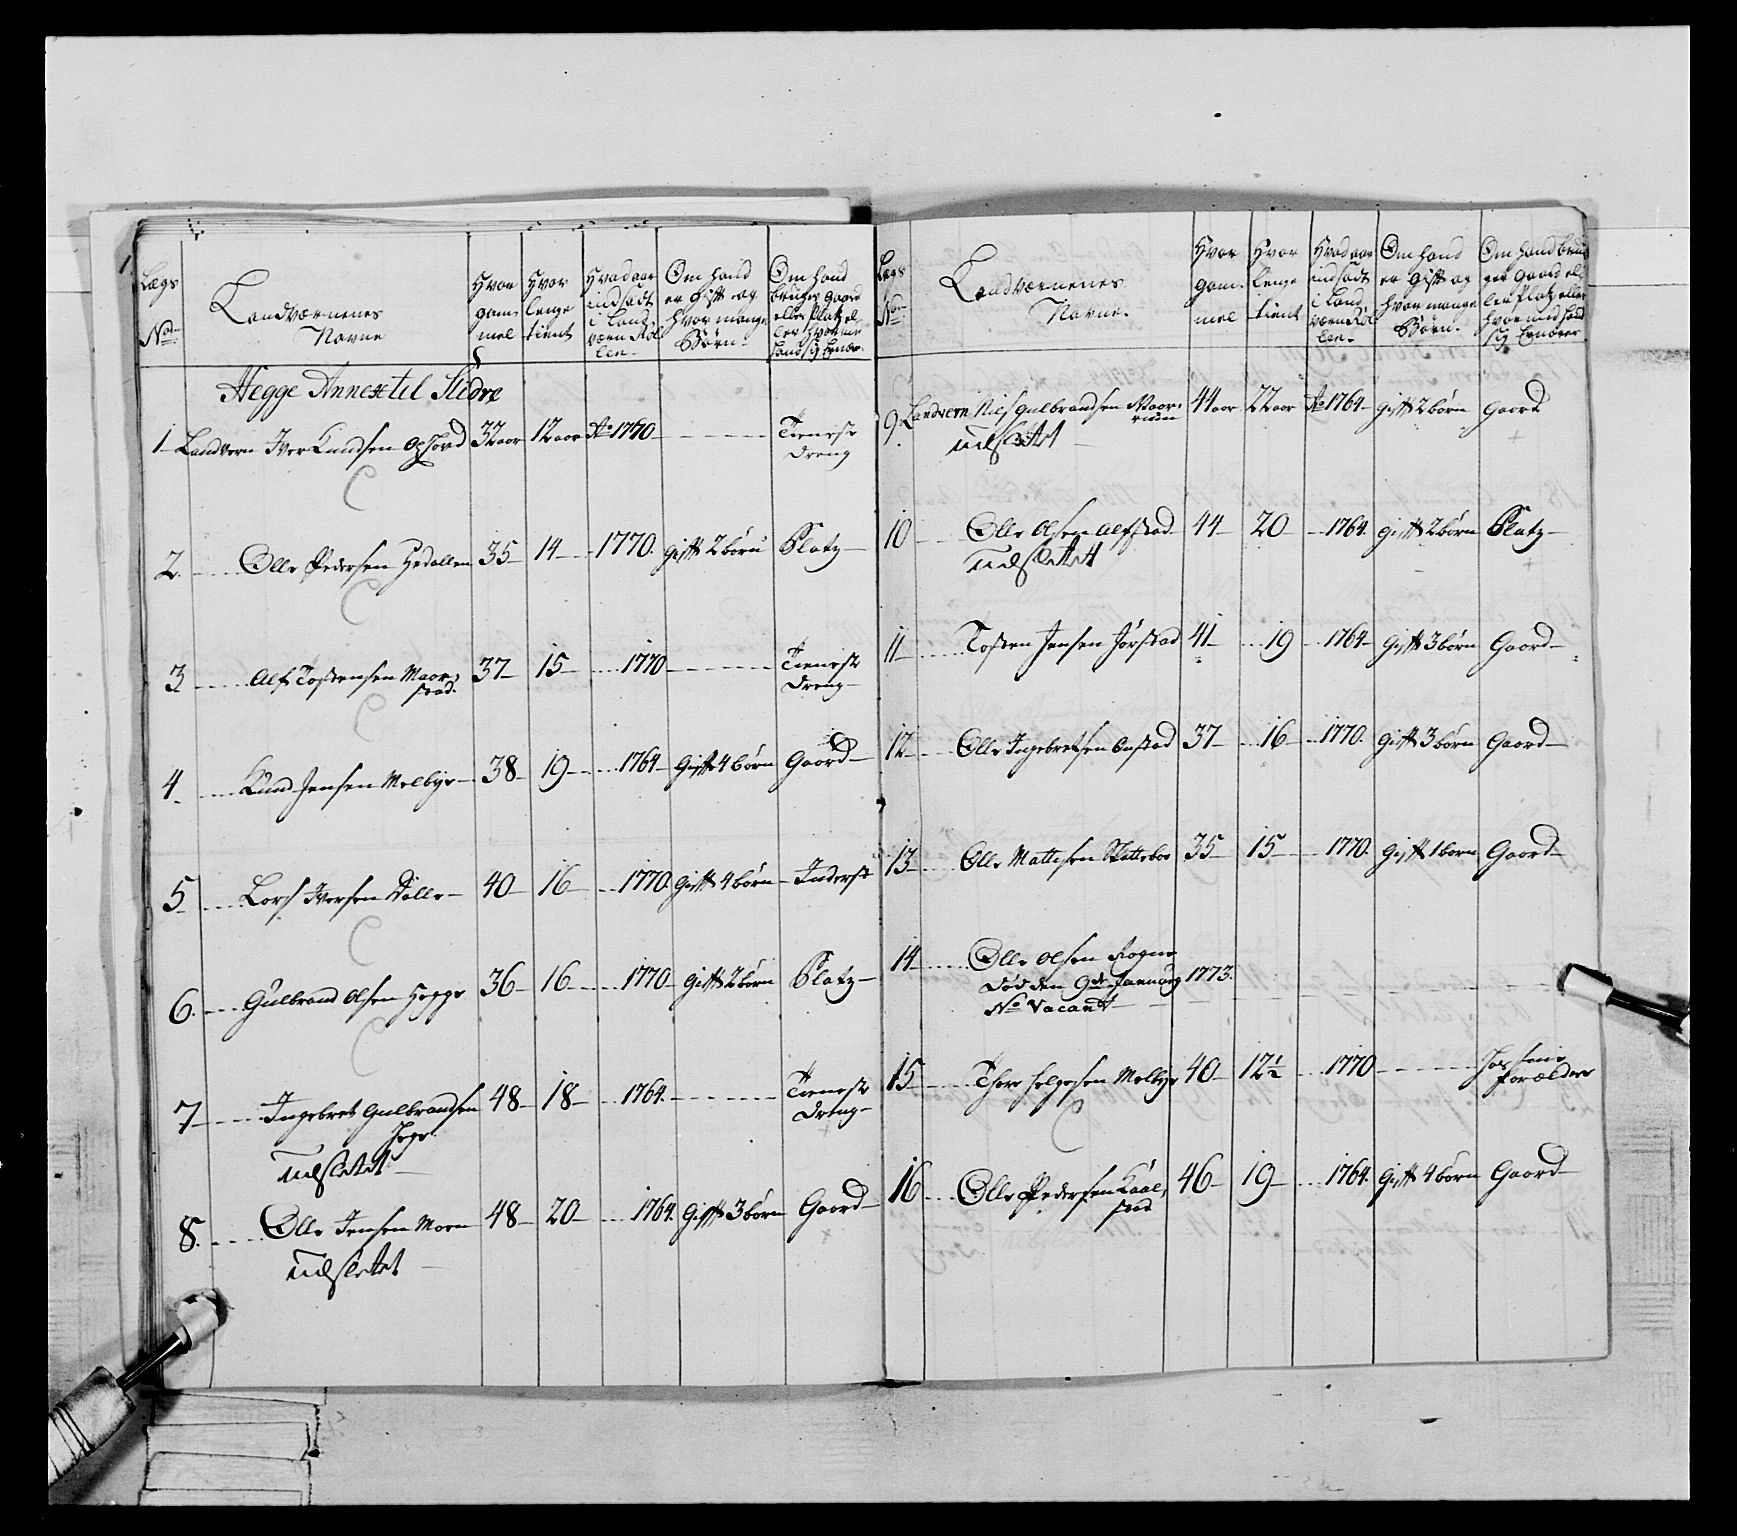 Lægs No
Landværnenes Navne
Hvor gammel
Hvor lenge tient
Hvad aar indsadt i Land værn Rollen
Om hand er gift og hvor mange Børn
Om hand bruger gaard eller Platz eller hvormed hand sig Ernærer
Hegge Annex til Slidre
1 Landvern Iver Knudsen 32 aar 12 aar Ao 1770 Tieneste Dreng
2 Olle Pedersen Hedallen 35 14 1770 gift 2 børn Platz
3 Alf Tostensen Maarstad 37 15 1770 Tieneste Dreng
4 Knud Jensen Melbye 38 19 1764 gift 4 børn Gaard
5 Lars Iversen Dalle 40 16 1770 gift 4 børn Inderst
6 Gulbrand Olsen Hegge 36 16 1770 gift 2 børn Platz
7 Ingebret Gulbrandsen 48 18 1764 Tieneste Dreng
udslettet
8 Olle Jensen Moen 48 20 1764 gift 3 børn Gaard
udslettet
Lægs No
Landværnenes Navne
Hvor gammel
Hvor lenge tient
Hvad aar indsadt i Land værn Rollen
Om hand er gift og hvor mange Børn
Om hand bruger gaard eller Platz eller hvormed hand sig Ernærer
9 Landvern Niels Gulbrandsen 44 aar 22 aar Ao 1764 gift 2 børn gaard
udslettet
10 Olle Olsen Alfstad 44 20 1764 gift 2 børn Platz
udslettet
11 Tosten Jensen Jørstad 41 19 1764 gift 3 børn Gaard
12 Olle Ingebretsen Onstad 37 16 1770 gift 3 børn Gaard
13 Olle Mattisen Skatteboe 35 15 1770 gift 1 barn Gaard
14 Olle Olsen Rogne
død den 9de Januarij 1773.
No Vacant
15 Thore Helgesen Melbye 40 12½ 1770 hos sine Forældre
16 Olle Pedersen Kaalstad 46 19 1764 gift 4 børn Gaard